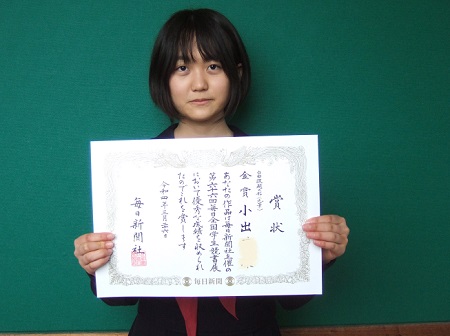 賞状
金賞 小出
あなたの作品は毎日新聞社主催の
第六十六回毎日全国学生競書展
において優秀な成績を収められ
たのでこれを賞します
令和四年三月
毎日新聞社
毎日新聞